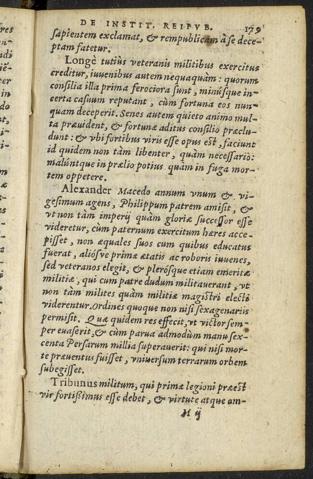 DE INSTIT. REIPVB. 179
sapientem exclamat, & rempublicam à se dece-
ptam fatetur.
Longè tutiùs veteranis militibus exercitus
creditur, iuuenibus autem nequaquàm: quorum
consilia illa prima ferociora sunt, minúsque in-
certa casiuum reputant, cùm fortuna eos nun-
quam deceperit. Senes autem quieto animo mul-
ta præuident, & fortunæ aditus consilio præclu-
dunt: & vbi fortibus viris esse opus est, faciunt
id quidem non tàm libenter, quàm necessariò:
malúntque in prælio potius quàm in fuga mor-
tem oppetere.
Alexander Macedo annum vnum & vi-
gesimum agens, Philippum patrem amisit, &
vt non tàm imperij quàm gloriæ successor esse
videretur, cùm paternum exercitum hæres acce-
pisset, non æquales suos cum quibus educatus
fuerat, aliósve primæ ætatis ac roboris iuuenes,
sed veteranos elegit, & plerósque etiam emeritæ
militiæ, qui cum patre dudum militauerant, vt
non tàm milites quàm militiæ magistri electi
viderentur. Ordines quoque non nisi sexagenariis
permisit. Quæ quidem res effecit, vt victor sem-
per euaserit, & cùm parua admodùm manu sex-
centa Persarum millia superauerit: qui nisi mor-
te præuentus fuisset, vniuersum terrarum orbem
subegisset.
Tribunus militum, qui primæ legioni præest
vir fortissimus esse debet, & virtute atque am-
M ij